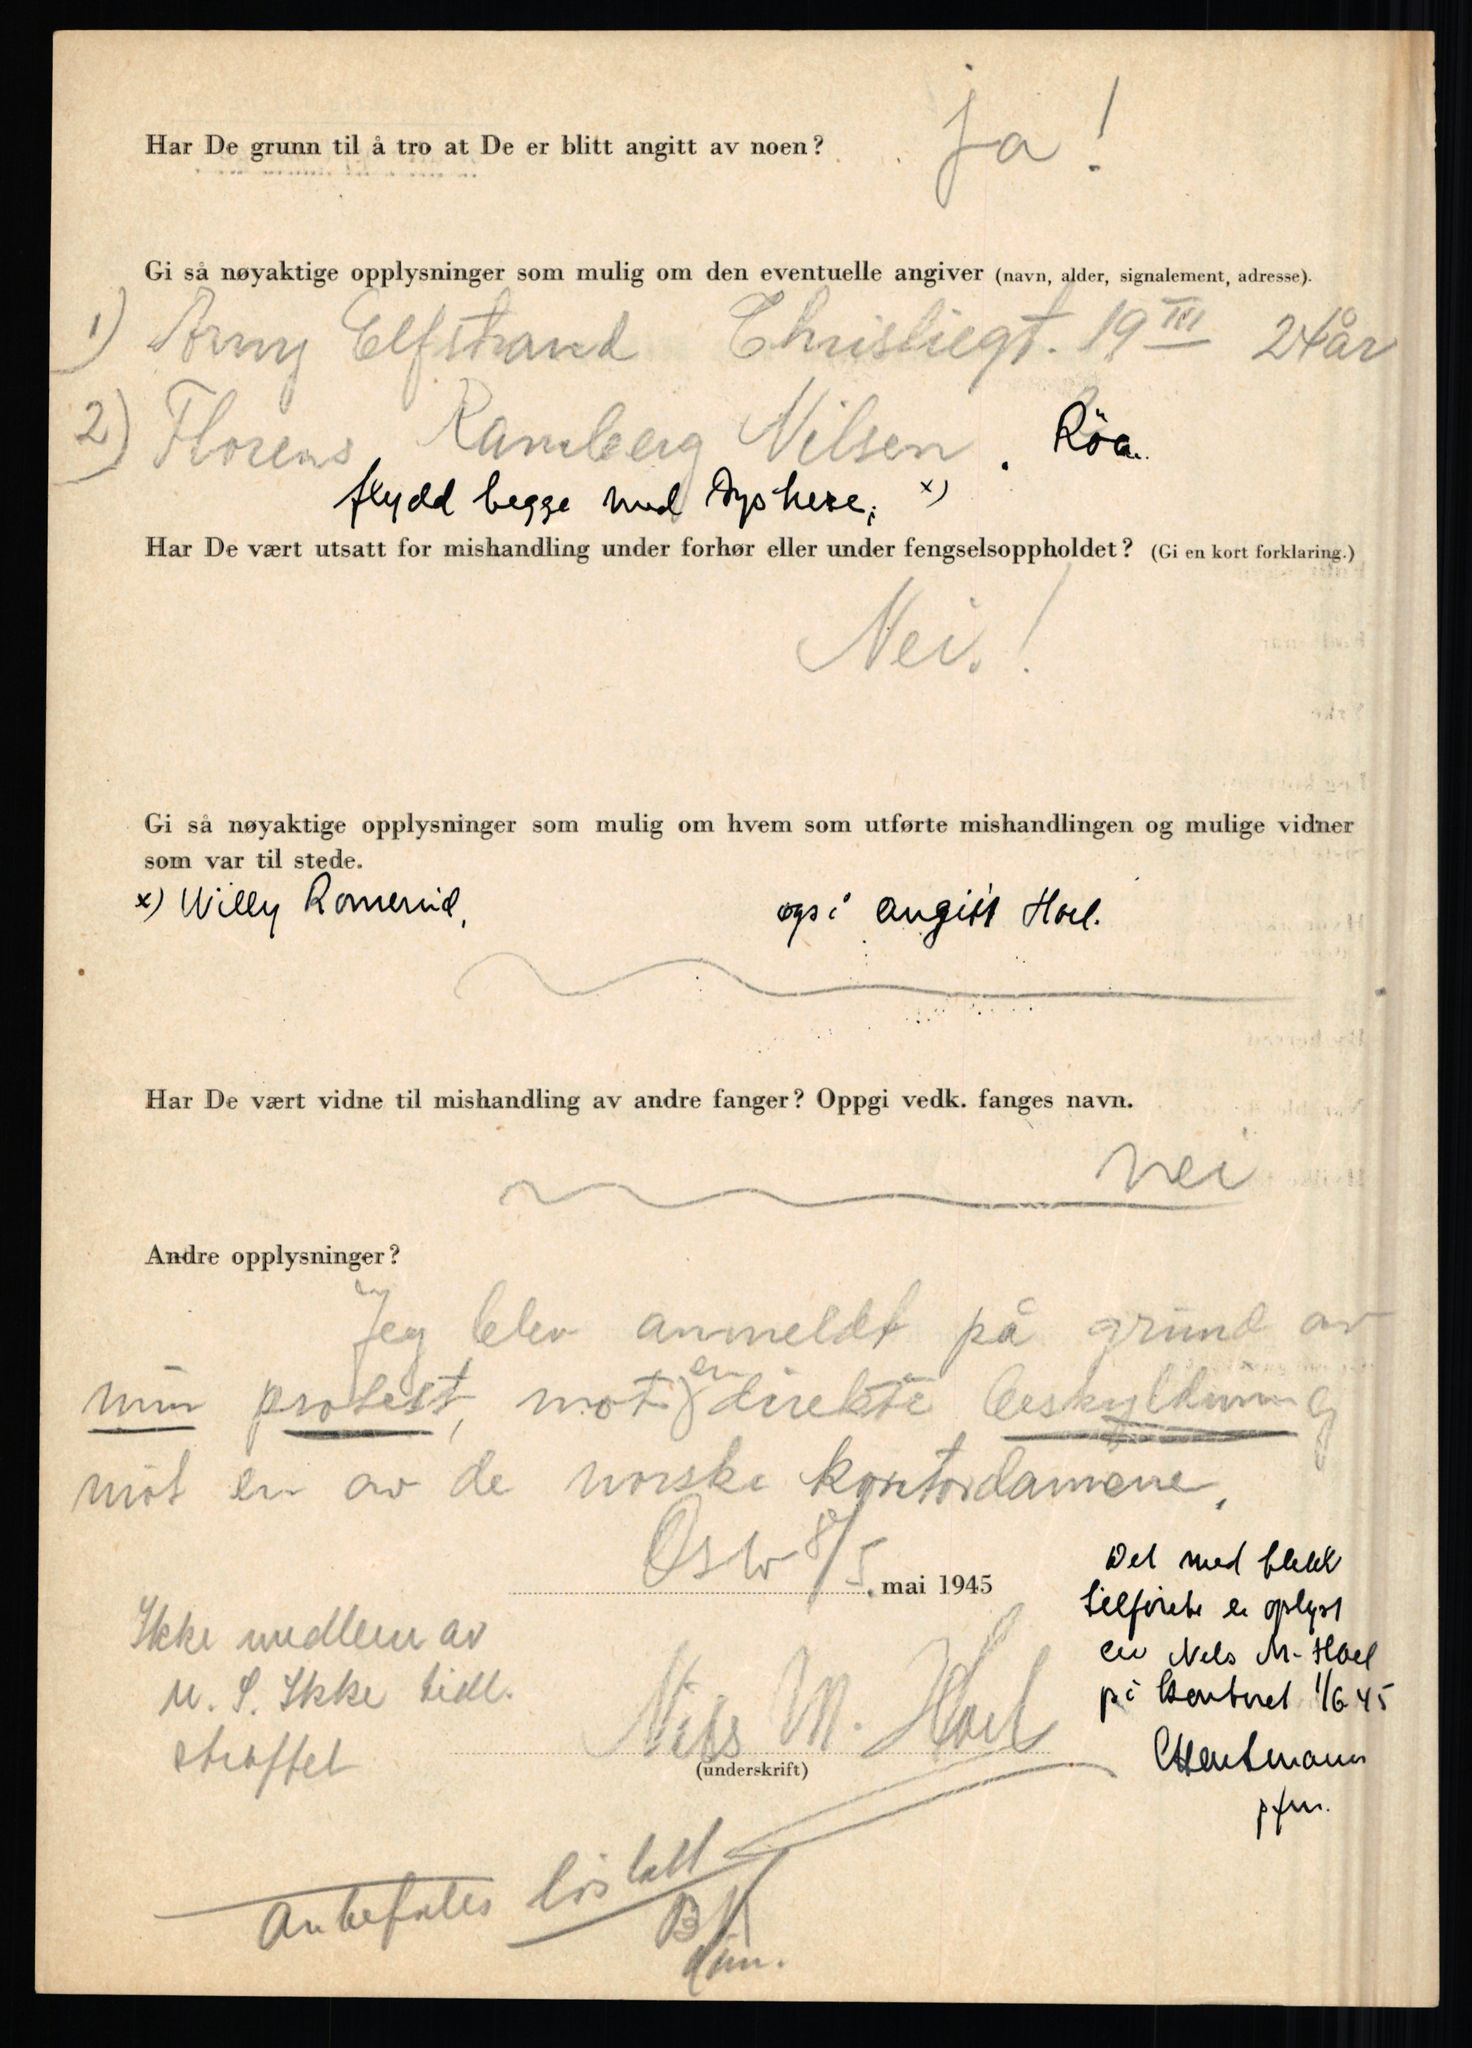 Har De grunn til å tro at De er blitt angitt av noen?
Ja!
Gi så nøyaktige opplysninger som mulig om den eventuelle angiver (navn, alder, signalement, adresse).
1) Arny Elfstrand Christiegt. 19 III 24 år
2) Florens Ramberg Nilsen. Röa.
flydd begge med tyskere; x)
Har De vært utsatt for mishandling under forhør eller under fengselsoppholdet? (Gi en kort forklaring.)
Nei.!
Gi så nøyaktige opplysninger som mulig om hvem som utførte mishandlingen og mulige vidner
som var til stede.
x) Willy Romerud, også angitt Hoel.
Har De vært vidne til mishandling av andre fanger? Oppgi vedk. fanges navn.
nei
Andre opplysninger?
Jeg blev anmeldt på grund av
min protest, mot en direkte beskyldning
mot en av de norske kontordamene.
Oslo 8/5. mai 1945
Ikke medlem av
N. S. Ikke tidl.
straffet
Nils M. Hoel
(underskrift)
Det med blekk
tilførte er oplyst
av Nils M. Hoel
på kontoret 1/6 45
pfm.
Anbefales löslatt